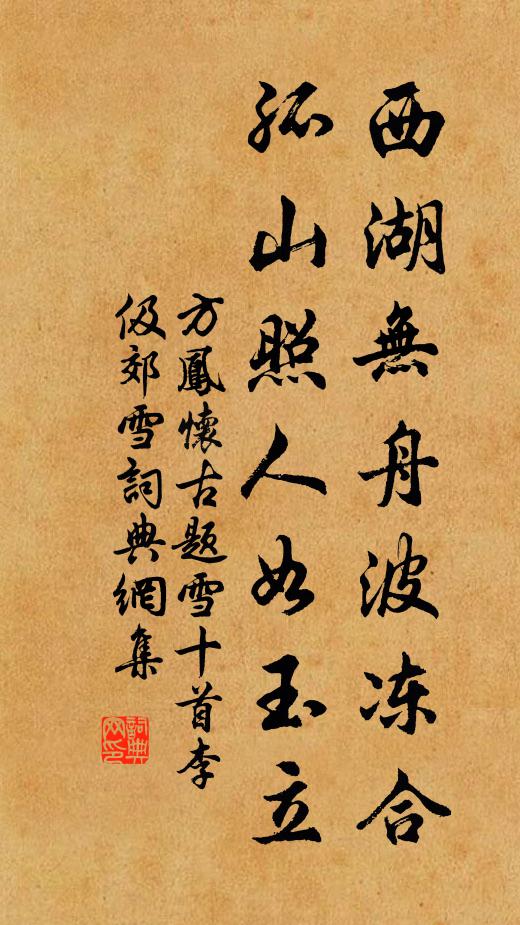 西湖無舟波冻合
孤山照人如玉立
方鳳懷古题雪十首李
伋郊雪詞典網集
詞典
网印